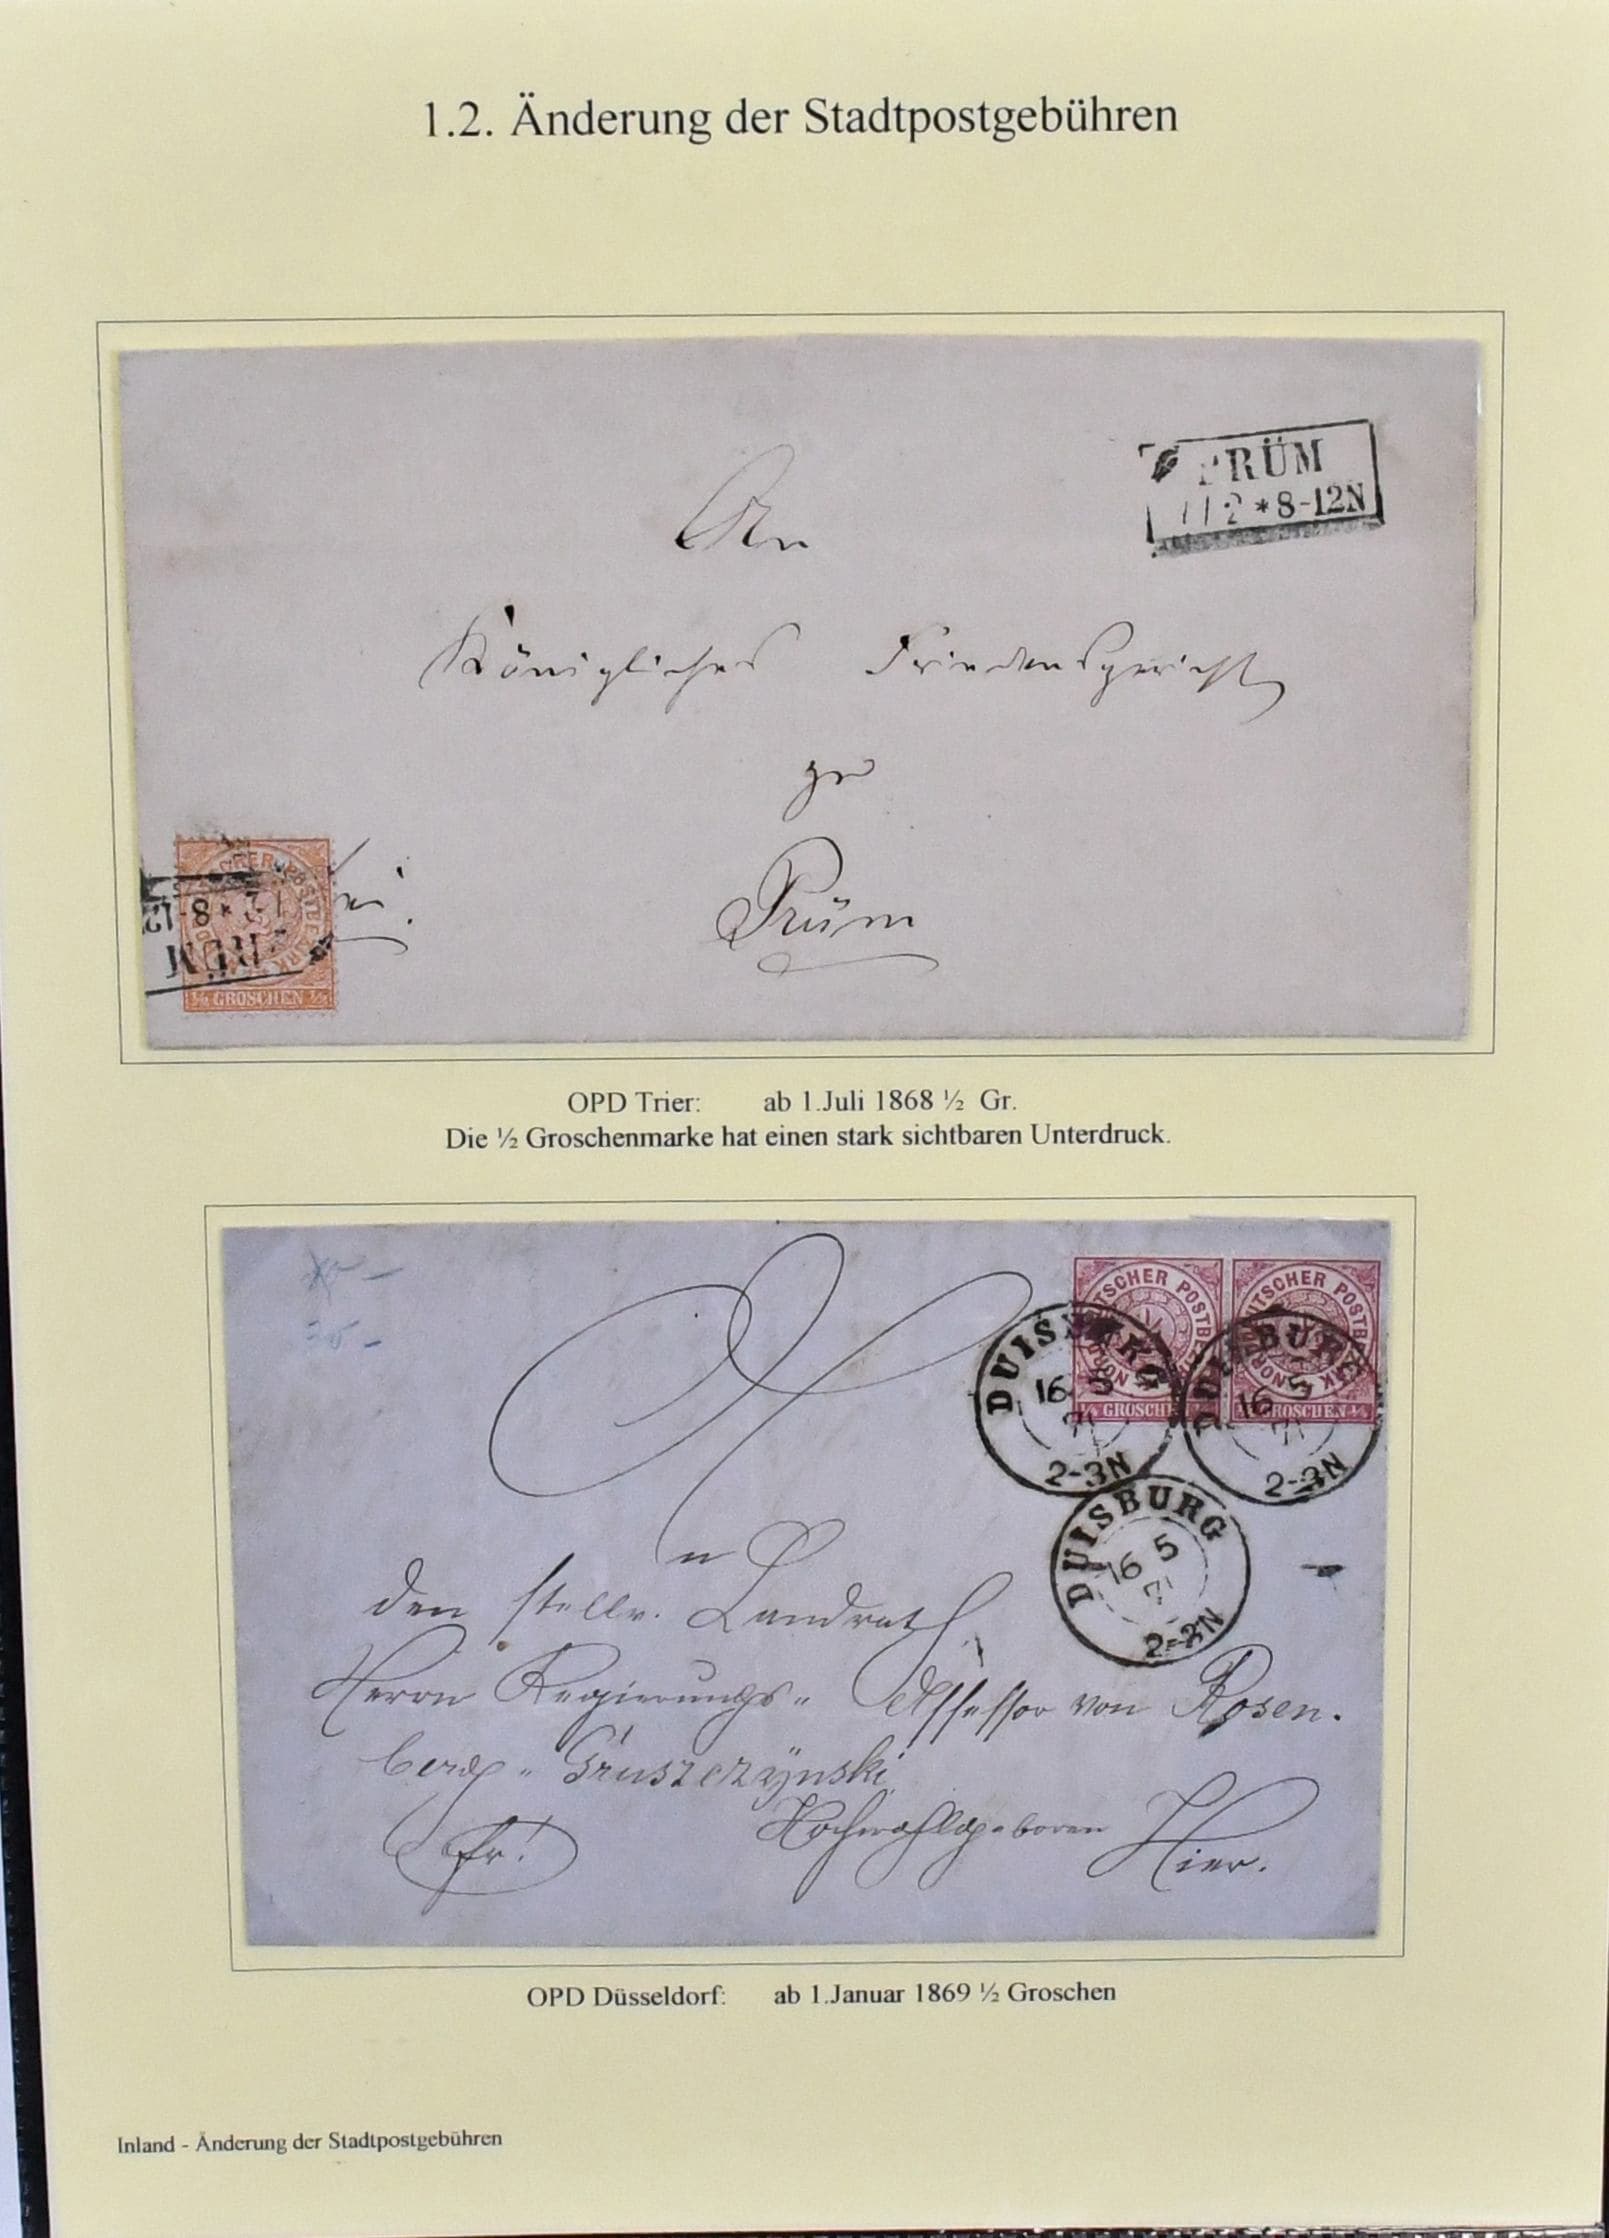 1.2. Änderung der Stadtpostgebühren
PRÜM
11 2 * 8-12N
An
Königliches Friedensgericht
zu
Prüm
1/2 GROSCHEN 1/2
8-12
RÜM
OPD Trier: ab 1.Juli 1868 ½ Gr.
Die ½ Groschenmarke hat einen stark sichtbaren Unterdruck.
NORDDEUTSCHER POSTBEZIRK
1/4 GROSCHEN
NORDDEUTSCHER POSTBEZIRK
1/4 GROSCHEN 1/4
DUISBURG
16 5
71
2-3N
DUISBURG
16 5
71
2-3N
DUISBURG
16 5
71
2-3N
An
den stellv. Landrath
Herrn Regierungs- Assessor von Rosen-
berg- Gruszczÿnski
Hochwohlgeboren
fr!
Hier.
OPD Düsseldorf: ab 1.Januar 1869 ½ Groschen
Inland - Änderung der Stadtpostgebühren